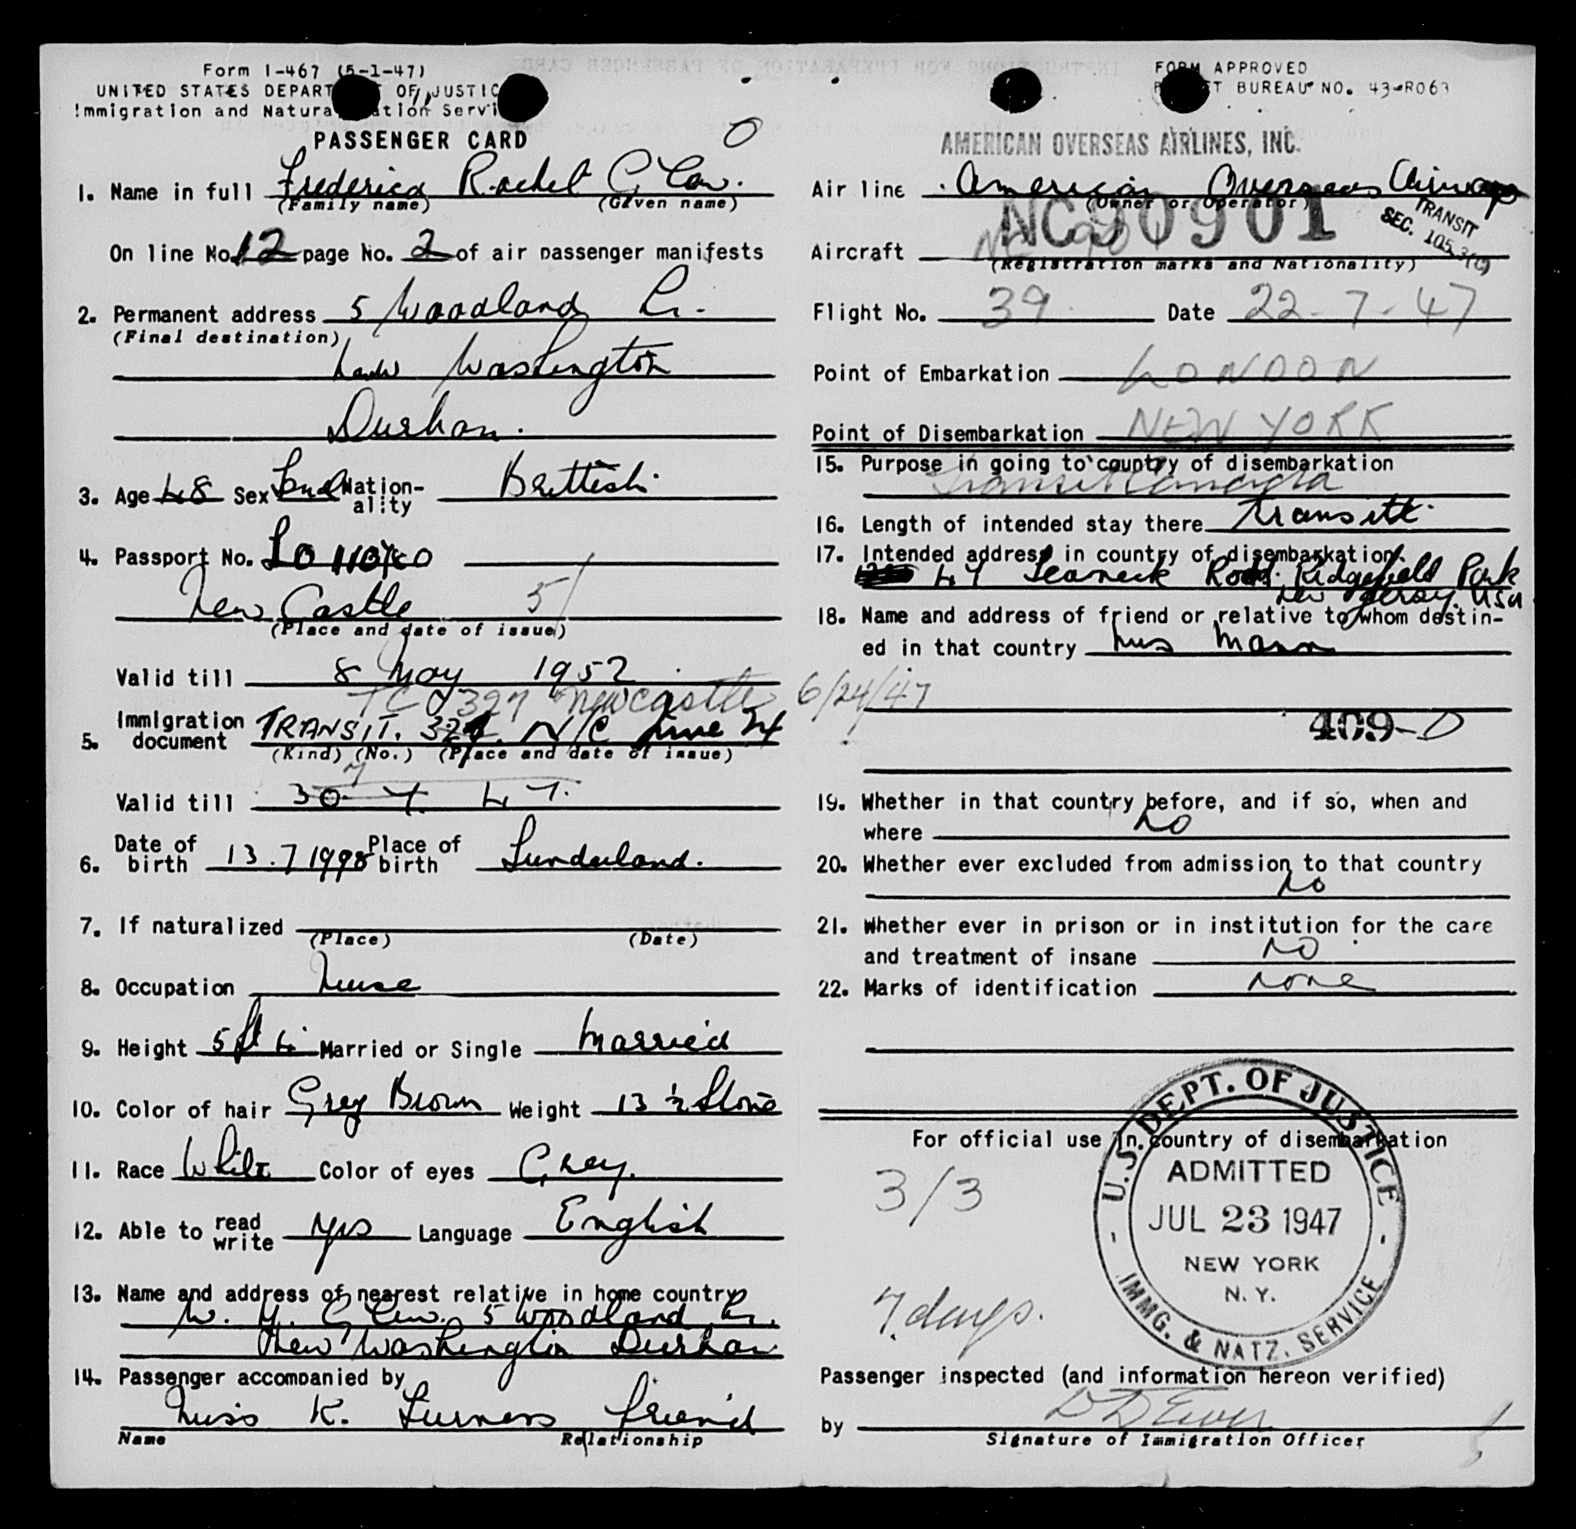 Form I-467 (5-1-47)
UNITED STATES DEPART T OF JUSTIC
Immigration and Natura ation Servi
PASSENGER CARD
0
1. Name in full Frederica Rachel
(Family name) (Given name)
On line No. 12 page No. 2 of air passenger manifests
2. Permanent address 5 Woodland
(Final destination)
Washington
Durham.
3. Age 48 Sex Nation-ality Brittish.
4. Passport No.
New Castle 5/
(Place and date of issue)
Valid till 8 May 1952
327 Newcastle 6/24/47
5. Immigration document TRANSIT. N/C June 24
(Kind) (No.) (Place and date of issue)
Valid till 30 7 47.
6. Date of birth 13.7 1998 Place of birth Sunderland.
7. If naturalized
(Place) (Date)
8. Occupation Nurse
9. Height 5 ft 4 Married or Single Married
10. Color of hair Grey Brown Weight 13 ½ Stone
11. Race White Color of eyes Grey.
12. Able to read write yes Language English
13. Name and address of nearest relative in home country
5 Woodland
New Washington Durham
14. Passenger accompanied by
Miss K. friend
Name Relationship
FORM APPROVED
T BUREAU NO. 43-R063
AMERICAN OVERSEAS AIRLINES, INC.
Air line American Overseas Airways
(Owner or Operator)
TRANSIT
SEC. 105.3(C)
NC90901
Aircraft
(Registration marks and Nationality)
Flight No. 39 Date 22-7-47
Point of Embarkation LONDON
Point of Disembarkation NEW YORK
15. Purpose in going to country of disembarkation
Transit Canada
16. Length of intended stay there transitt.
17. Intended address in country of disembarkation.
47 Teaneck Road. Ridgefield Park
New Jersey. USA
18. Name and address of friend or relative to whom destin-
ed in that country Mrs Mann
409-D
19. Whether in that country before, and if so, when and
where NO
20. Whether ever excluded from admission to that country
NO
21. Whether ever in prison or in institution for the care
and treatment of insane NO
22. Marks of identification None
For official use in country of disembarkation
3/3
7 days.
U.S. DEPT. OF JUSTICE
ADMITTED
JUL 23 1947
NEW YORK
N. Y.
IMMG. & NATZ. SERVICE
Passenger inspected (and information hereon verified)
by
Signature of Immigration Officer